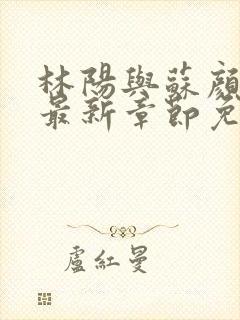 林陽與蘇顏
最新章節免
盧紅曼